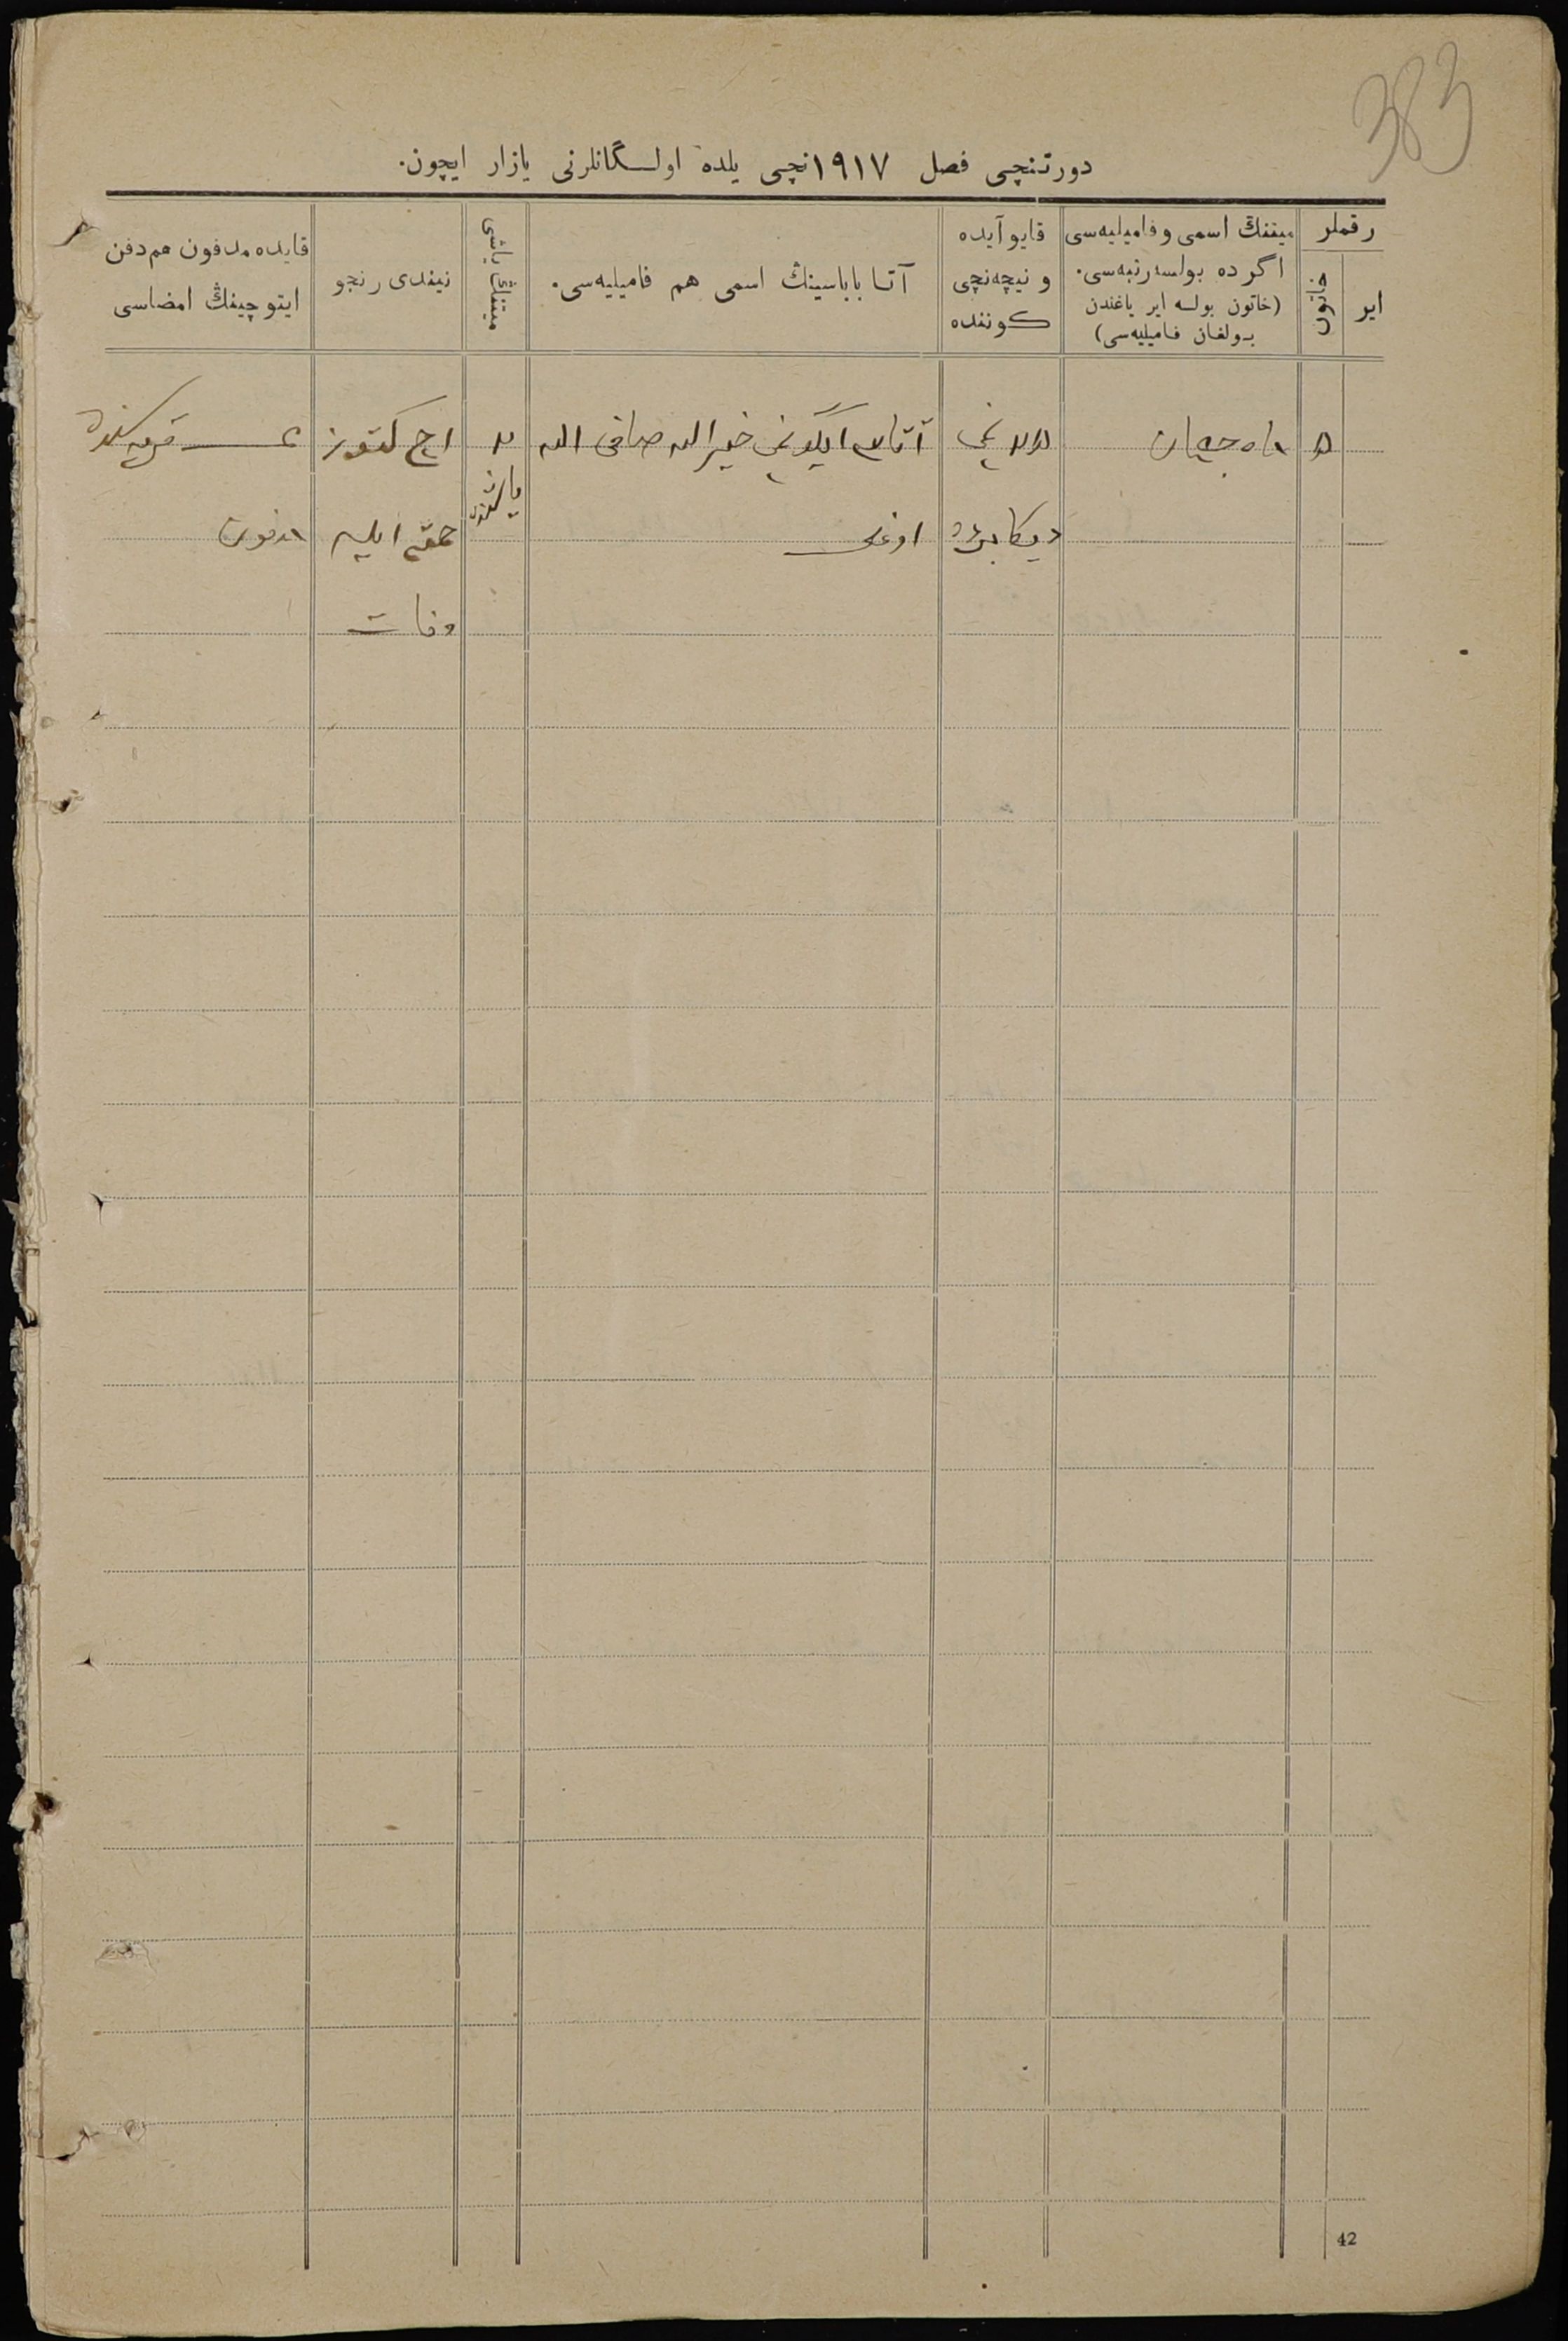 383
دورتنچی فصل ۱۹۱۷نچی یلده اولسگانلرنی یازار ایچون.
رقملر
ایر
خاتون
میتنڭ اسمی و فامیلیه‌سی
اگر ده بولسه رتبه‌سی.
(خاتون بولسه ایر یاغندن
بولغان فامیلیه‌سی)
قایو آیده
و نیچه‌نچی
کوننده
آتا باباسینڭ اسمی هم فامیلیه‌سی.
میتنڭ یاشی
نیندی رنجو
قایده مدفون هم دفن
ایتوچینڭ امضاسی
۵
ماه جهان
نچی
دیکابرده
آتاسی خیرالله صافی الله
اوغلی
۲
یاشنده
ایله
وفات
مدفون
42